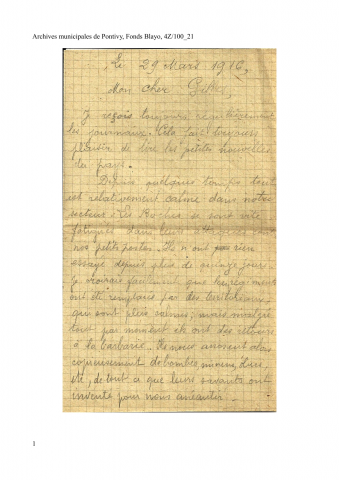 Archives municipales de Pontivy, Fonds Blayo, 4Z/100_21
Le 29 Mars 1916
Mon cher
Je reçois toujours régulièrement
les journaux. Cela fait toujours
plaisir de lire les petites nouvelles
du pays.
Depuis quelques temps tout
est relativement calme dans notre
secteur. Les Boches se sont vite
fatigués dans leurs attaques
nos petits postes. Ils n'ont pas rien
essayé depuis plus de quinze jours.
Je croirais facilement que les régiments
ont été remplacés par des territoriaux,
qui sont plus calmes; mais malgré
tout par moment ils ont des retours
à la barbarie. Ils nous arrosent alors
copieusement de bombes, minens,
etc, de tout ce que leurs savants ont
inventé pour nous anéantir.
1